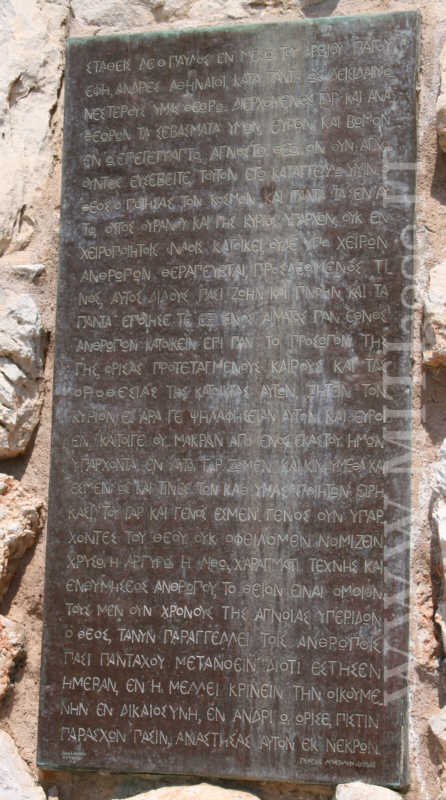 ΣΤΑΘΕΙΣ ΔΕ Ο ΠΑΥΛΟΣ ΕΝ ΜΕΣΩ ΤΟΥ ΑΡΕΙΟΥ ΠΑΓΟΥ
ΕΦΗ, ΑΝΔΡΕΣ ΑΘΗΝΑΙΟΙ, ΚΑΤΑ ΠΑΝΤΑ ΩΣ ΔΕΙΣΙΔΑΙΜΟ
ΝΕΣΤΕΡΟΥΣ ΥΜΑΣ ΘΕΩΡΩ, ΔΙΕΡΧΟΜΕΝΟΣ ΓΑΡ ΚΑΙ ΑΝΑ
ΘΕΩΡΩΝ ΤΑ ΣΕΒΑΣΜΑΤΑ ΥΜΩΝ, ΕΥΡΟΝ ΚΑΙ ΒΩΜΟΝ
ΕΝ Ω ΕΠΕΓΕΓΡΑΠΤΟ, ΑΓΝΩΣΤΩ ΘΕΩ, ΟΝ ΟΥΝ ΑΓΝΟ
ΟΥΝΤΕΣ ΕΥΣΕΒΕΙΤΕ, ΤΟΥΤΟΝ ΕΓΩ ΚΑΤΑΓΓΕΛΛΩ ΥΜΙΝ,
ΘΕΟΣ Ο ΠΟΙΗΣΑΣ ΤΟΝ ΚΟΣΜΟΝ ΚΑΙ ΠΑΝΤΑ ΤΑ ΕΝ ΑΥ
ΤΩ, ΟΥΤΟΣ ΟΥΡΑΝΟΥ ΚΑΙ ΓΗΣ ΚΥΡΙΟΣ ΥΠΑΡΧΩΝ, ΟΥΚ ΕΝ
ΧΕΙΡΟΠΟΙΗΤΟΙΣ ΝΑΟΙΣ ΚΑΤΟΙΚΕΙ, ΟΥΔΕ ΥΠΟ ΧΕΙΡΩΝ
ΑΝΘΡΩΠΩΝ ΘΕΡΑΠΕΥΕΤΑΙ, ΠΡΟΣΔΕΟΜΕΝΟΣ ΤΙ
ΝΟΣ, ΑΥΤΟΣ ΔΙΔΟΥΣ ΠΑΣΙ ΖΩΗΝ ΚΑΙ ΠΝΟΗΝ ΚΑΙ ΤΑ
ΠΑΝΤΑ ΕΠΟΙΗΣΕ ΤΕ ΕΞ ΕΝΟΣ ΑΙΜΑΤΟΣ ΠΑΝ ΕΘΝΟΣ
ΑΝΘΡΩΠΩΝ ΚΑΤΟΙΚΕΙΝ ΕΠΙ ΠΑΝ ΤΟ ΠΡΟΣΩΠΟΝ ΤΗΣ
ΓΗΣ, ΟΡΙΣΑΣ ΠΡΟΤΕΤΑΓΜΕΝΟΥΣ ΚΑΙΡΟΥΣ ΚΑΙ ΤΑΣ
ΟΡΟΘΕΣΙΑΣ ΤΗΣ ΚΑΤΟΙΚΙΑΣ ΑΥΤΩΝ, ΖΗΤΕΙΝ ΤΟΝ
ΚΥΡΙΟΝ ΕΙ ΑΡΑ ΓΕ ΨΗΛΑΦΗΣΕΙΑΝ ΑΥΤΟΝ ΚΑΙ ΕΥΡΟΙ
ΕΝ ΚΑΙΤΟΙΓΕ ΟΥ ΜΑΚΡΑΝ ΑΠΟ ΕΝΟΣ ΕΚΑΣΤΟΥ ΗΜΩΝ
ΥΠΑΡΧΟΝΤΑ, ΕΝ ΑΥΤΩ ΓΑΡ ΖΩΜΕΝ ΚΑΙ ΚΙΝΟΥΜΕΘΑ ΚΑΙ
ΕΣΜΕΝ, ΩΣ ΚΑΙ ΤΙΝΕΣ ΤΩΝ ΚΑΘ ΥΜΑΣ ΠΟΙΗΤΩΝ ΕΙΡΗ
ΚΑΣΙ, ΤΟΥ ΓΑΡ ΚΑΙ ΓΕΝΟΣ ΕΣΜΕΝ, ΓΕΝΟΣ ΟΥΝ ΥΠΑΡ
ΧΟΝΤΕΣ ΤΟΥ ΘΕΟΥ ΟΥΚ ΟΦΕΙΛΟΜΕΝ ΝΟΜΙΖΕΙΝ
ΧΡΥΣΩ, Η ΑΡΓΥΡΩ Η ΛΙΘΩ, ΧΑΡΑΓΜΑΤΙ ΤΕΧΝΗΣ ΚΑΙ
ΕΝΘΥΜΗΣΕΩΣ ΑΝΘΡΩΠΟΥ, ΤΟ ΘΕΙΟΝ ΕΙΝΑΙ ΟΜΟΙΟΝ,
ΤΟΥΣ ΜΕΝ ΟΥΝ ΧΡΟΝΟΥΣ ΤΗΣ ΑΓΝΟΙΑΣ ΥΠΕΡΙΔΩΝ
Ο ΘΕΟΣ, ΤΑΝΥΝ ΠΑΡΑΓΓΕΛΛΕΙ ΤΟΙΣ ΑΝΘΡΩΠΟΙΣ
ΠΑΣΙ ΠΑΝΤΑΧΟΥ ΜΕΤΑΝΟΕΙΝ ΔΙΟΤΙ ΕΣΤΗΣΕΝ
ΗΜΕΡΑΝ, ΕΝ Η ΜΕΛΛΕΙ ΚΡΙΝΕΙΝ ΤΗΝ ΟΙΚΟΥΜΕ
ΝΗΝ ΕΝ ΔΙΚΑΙΟΣΥΝΗ, ΕΝ ΑΝΔΡΙ Ω ΩΡΙΣΕ, ΠΙΣΤΙΝ
ΠΑΡΑΣΧΩΝ ΠΑΣΙΝ, ΑΝΑΣΤΗΣΑΣ ΑΥΤΟΝ ΕΚ ΝΕΚΡΩΝ.